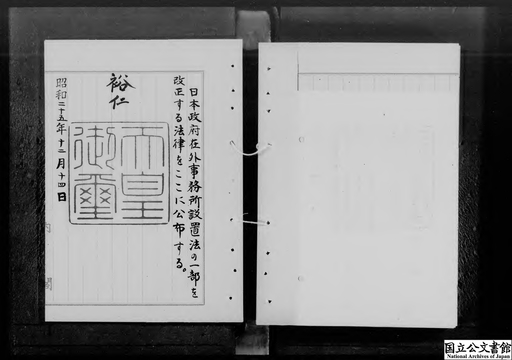 日本政府在外事務所設置法の一部を
改正する法律をここに公布する。
裕仁
天皇
御璽
昭和二十五年十二月十四日
内閣
国立公文書館
National Archives of Japan